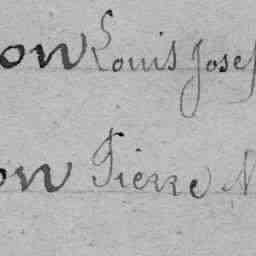 on Louis Josef
on Pierre N